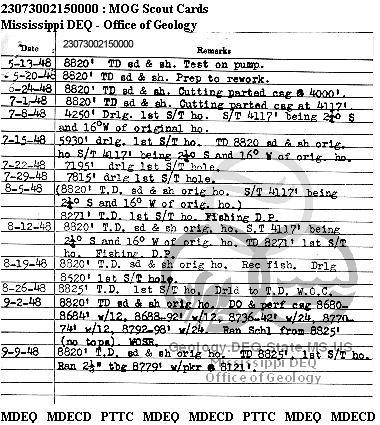 23073002150000 : MOG Scout Cards
Mississippi DEQ - Office of Geology
Date 23073002150000 Remarks
5-13-48 8820' TD sd & sh. Test on pump.
5-20-48 8820' TD sd & sh. Prep to rework.
6-24-48 8820' TD sd & sh. Cutting parted csg @ 4000'.
7-1-48 8820' TD sd & sh. Cutting parted csg at 4117'.
7-8-48 4250' Drlg. 1st S/T ho. S/T 4117' being 2½° S
and 16°W of original ho.
7-15-48 5930' drlg. 1st S/T ho. TD 8820 sd & sh orig.
ho S/T 4117' being 2½° S and 16° W of orig. ho.
7-22-48 7195' drlg 1st S/T hole.
7-29-48 7815' drlg 1st S/T hole.
8-5-48 (8820' T.D. sd & sh orig ho. S/T 4117' being
2½° S and 16° W of orig. ho.)
8271' T.D. 1st S/T ho. Fishing D.P.
8-12-48 8820' T.D. sd & sh orig ho. S.T 4117' being
2½° S and 16° W of orig. ho. TD 8271' 1st S/T
ho. Fishing. D.P.
8-19-48 8820' T.D. sd & sh orig ho. Rec fish. Drlg
8520' 1st S/T hole.
8-26-48 8825' T.D. 1st S/T ho. Drld to T.D. W.O.C.
9-2-48 8820' TD sd & sh orig ho. DO & perf csg 8680-
8684' w/12, 8688-92' w/12, 8736-42' w/24, 8770-
74' w/12, 8792-98' w/24. Ran Schl from 8825'
(no tops). WOSR.
9-9-48 8820' T.D. sd & sh orig ho. TD 8825'. 1st S/T ho.
Ran 2½" tbg 8779' w/pkr @ 8121'.
Geology.DEQ.State.MS.US
Mississippi DEQ
Office of Geology
MDEQ MDECD PTTC MDEQ MDECD PTTC MDEQ MDECD